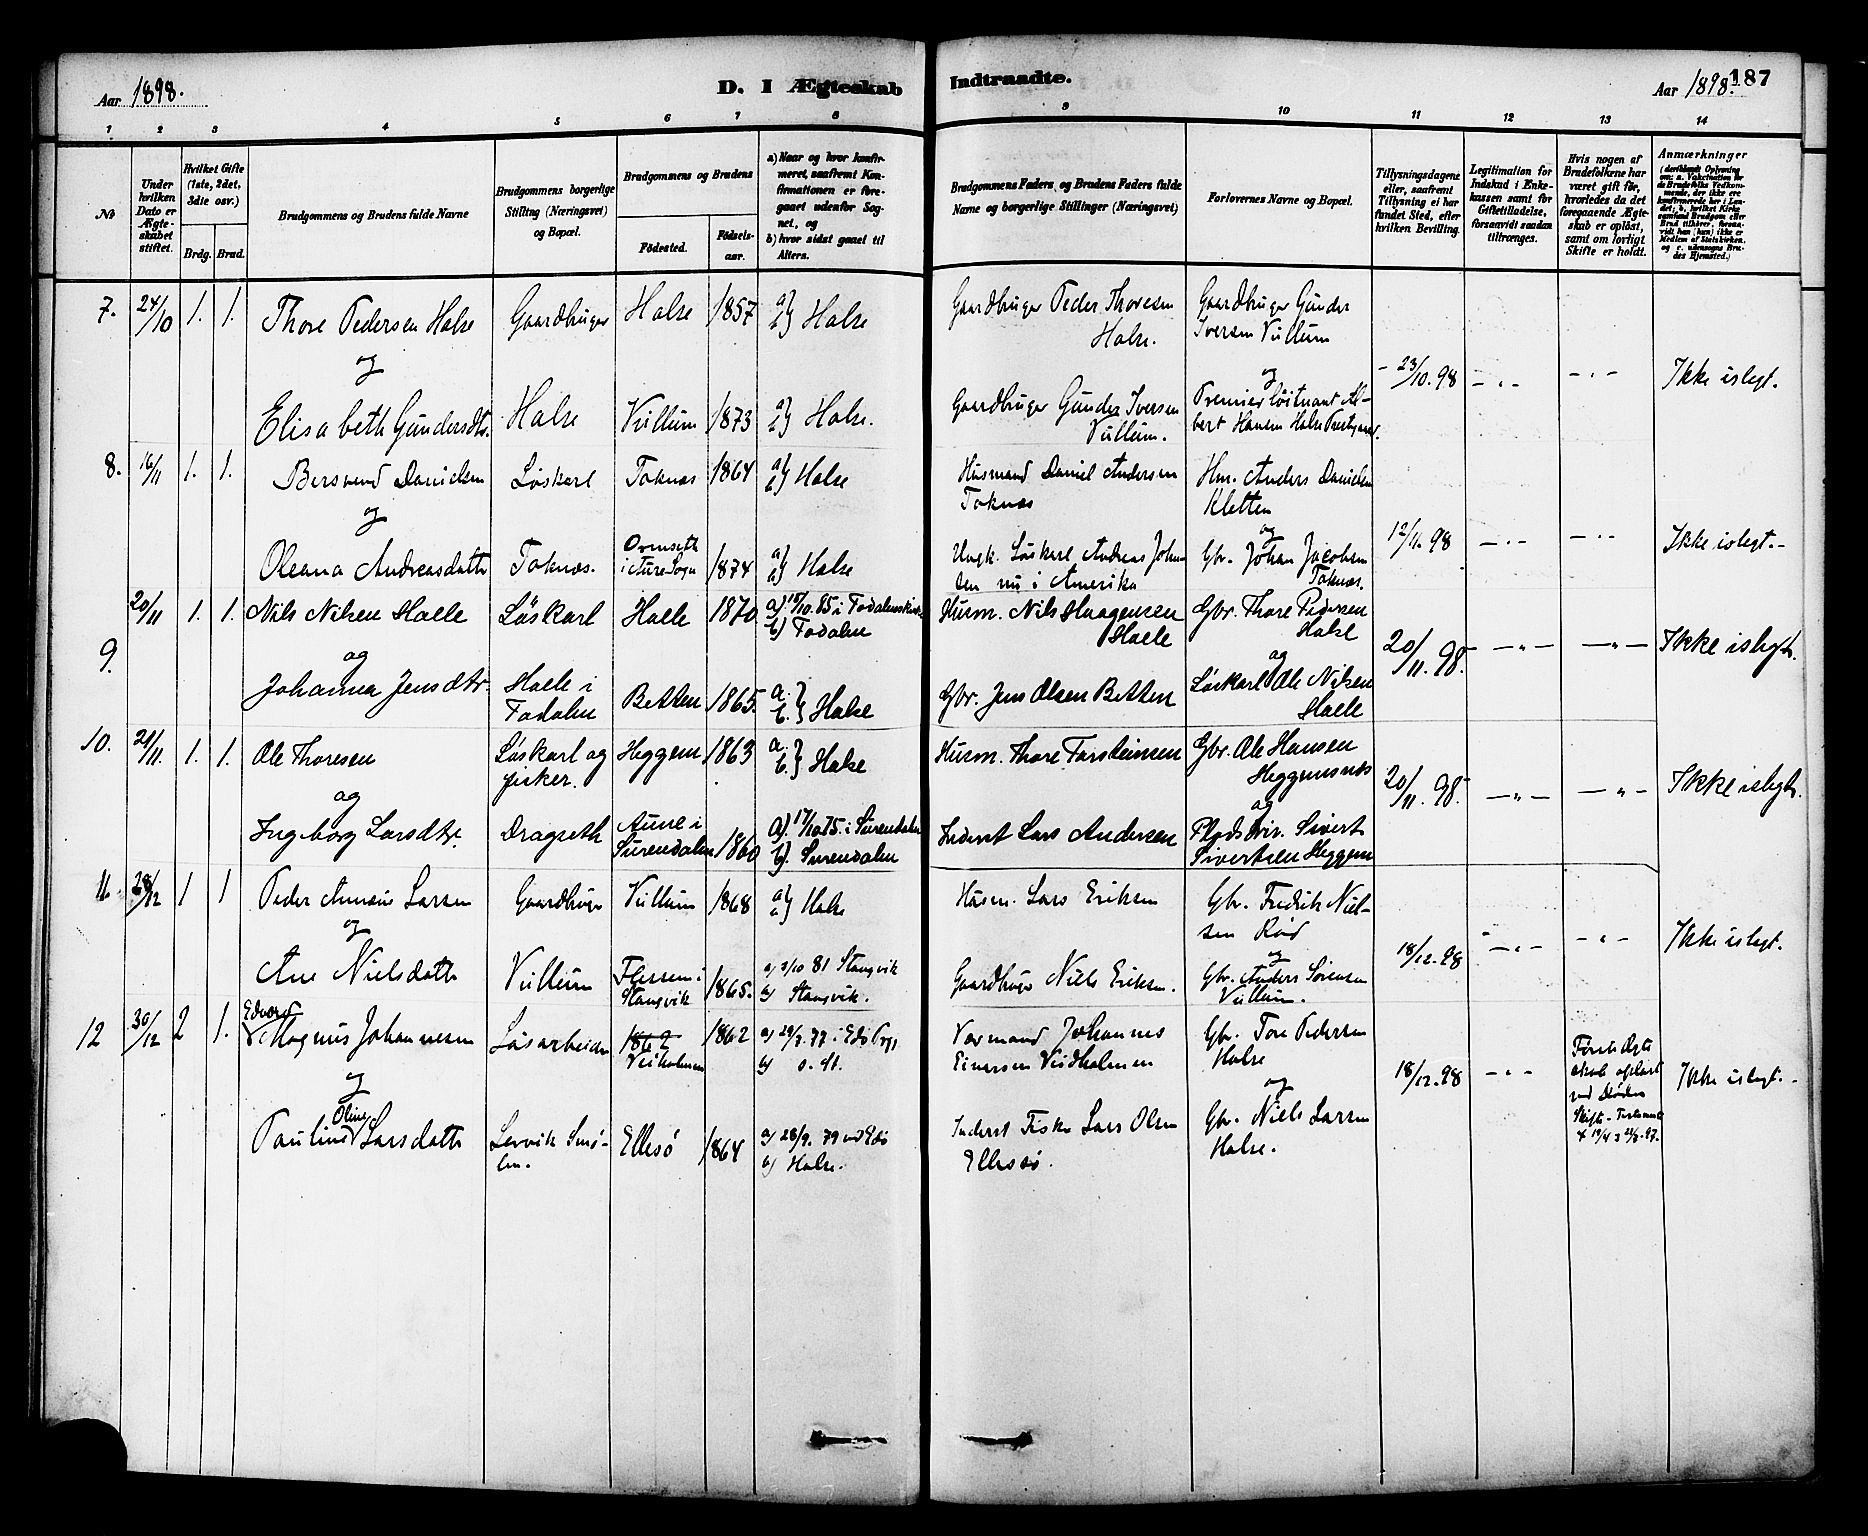 Aar 1898.
D. I Ægteskab Indtraadte.
Aar 1898.
187
1 2 3 4 5 6 7 8 9 10 11 12 13 14
No
Under hvilken Dato er Ægteskabet stiftet.
Hvilket Gifte (1ste, 2det, 3die osv.)
Brdg. Brud.
Brudgommens og Brudens fulde Navne
Brudgommens borgerlige Stilling (Næringsvei) og Bopæl.
Brudgommens og Brudens
Födested. Födsels-aar.
a) Naar og hvor konfirmeret, saafremt Konfirmationen er foregaaet udenfor Sognet, og
b) hvor sidst gaaet til Alters.
Brudgommens Faders og Brudens Faders fulde Navne og borgerlige Stillinger (Næringsvei)
Forlovernes Navne og Bopæl.
Tillysningsdagene eller, saafremt Tillysning ei har fundet Sted, efter hvilken Bevilling.
Legitimation for Indskud i Enkekassen samt for Giftetilladelse, forsaavidt saadan tiltrænges.
Hvis nogen af Brudefolkene har været gift før, hvorledes da det foregaaende Ægteskab er opløst, samt om lovligt Skifte er holdt.
Anmærkninger
7. 24/10 1. 1. Thore Pedersen Halse Gaardbruger Halse 1857 a) b) Halse Gaardbruger Peder Thoresen Halse. Gaardbruger Gunder Iversen Villum
og og - 23/10.98 - " - - " - Ikke islegt.
Elisabeth Gundersdtr. Halse Villum 1873 a) b) Halse. Gaardbruger Gunder Iversen Villum. Premierløitnant Albert Hansen Halse Prestgaard.
8. 16/11 1. 1. Bersvend Danielsen Løskarl Toknæs 1864 a) b) Halse Husmand Daniel Andersen Toknæs Hm. Anders Danielsen Kletten
og og 12/11.98 - " - - " - Ikke islegt.-
Oleana Andreasdatter Toknæs. i Aure Sogn 1874 a) b) Halse Ungk. Løskarl Andreas Johnsen nu i Amerika Gbr. Johan Jacobsen Toknæs.
9. 20/11 1. 1. Nils Nilsen Halle Løskarl Halle 1870 a) 18/10.85 i Todalens kirke b) Todalen Husm. Nils Haagensen Halle Gbr. Thore Pedersen Halse
og og 20/11.98. - " - - " - Ikke islegt.
Johanna Jensdtr. Halle i Todalen Betten 1865. a. b.} Halse Gbr. Jens Olsen Betten Løskarl Ole Nilsen Halle
10. 21/11. 1. 1. Ole Thoresen Løskarl og fisker. Heggem 1863 a. b.} Halse Husm. Thore Torsteinsen Gbr. Ole Hansen Heggemsnæs
og og 20/11.98. - " - - " - Ikke islegt.
Ingeborg Larsdtr. Dragseth Aune i Surendalen 1860 a). 17/10 75. i Surendalen b). Surendalen Inderst Lars Andersen Pladsbr. Sivert Sivertsen Heggem
11. 28/12 1 1 Peder Larsen Gaardbruger Villum 1868 a) b) Halse Husm. Lars Eriksen Gbr. Fredrik Nielsen Rød
og og 18/12.98 - " - - " - Ikke islegt.
Ane Nielsdatter Villum i Stangvik 1865. a) 2/10 81 Stangvik b) Stangvik. Gaardbruger Niels Eriksen. Gbr. Anders Sørensen Villum.
12 30/12 2 1. Edvard Magnus Johannesen Løsarbeider 1862 Veiholmen 1862 a) 29/9. 77 i Edø b) Johannes Einersen Veidholmen Gbr. Tore Pedersen Halse
og og 18/12.98 - " - Første Ægteskab opløst ved Døden Ikke islegt.-
Pauline Oline Larsdatter Lervik Smølen. Ellesø 1864 a) 28/9. 79 ved Edø b) Halse. Inderst Fisker Lars Olsen Ellesø. Gbr. Niels Larsen Halse.